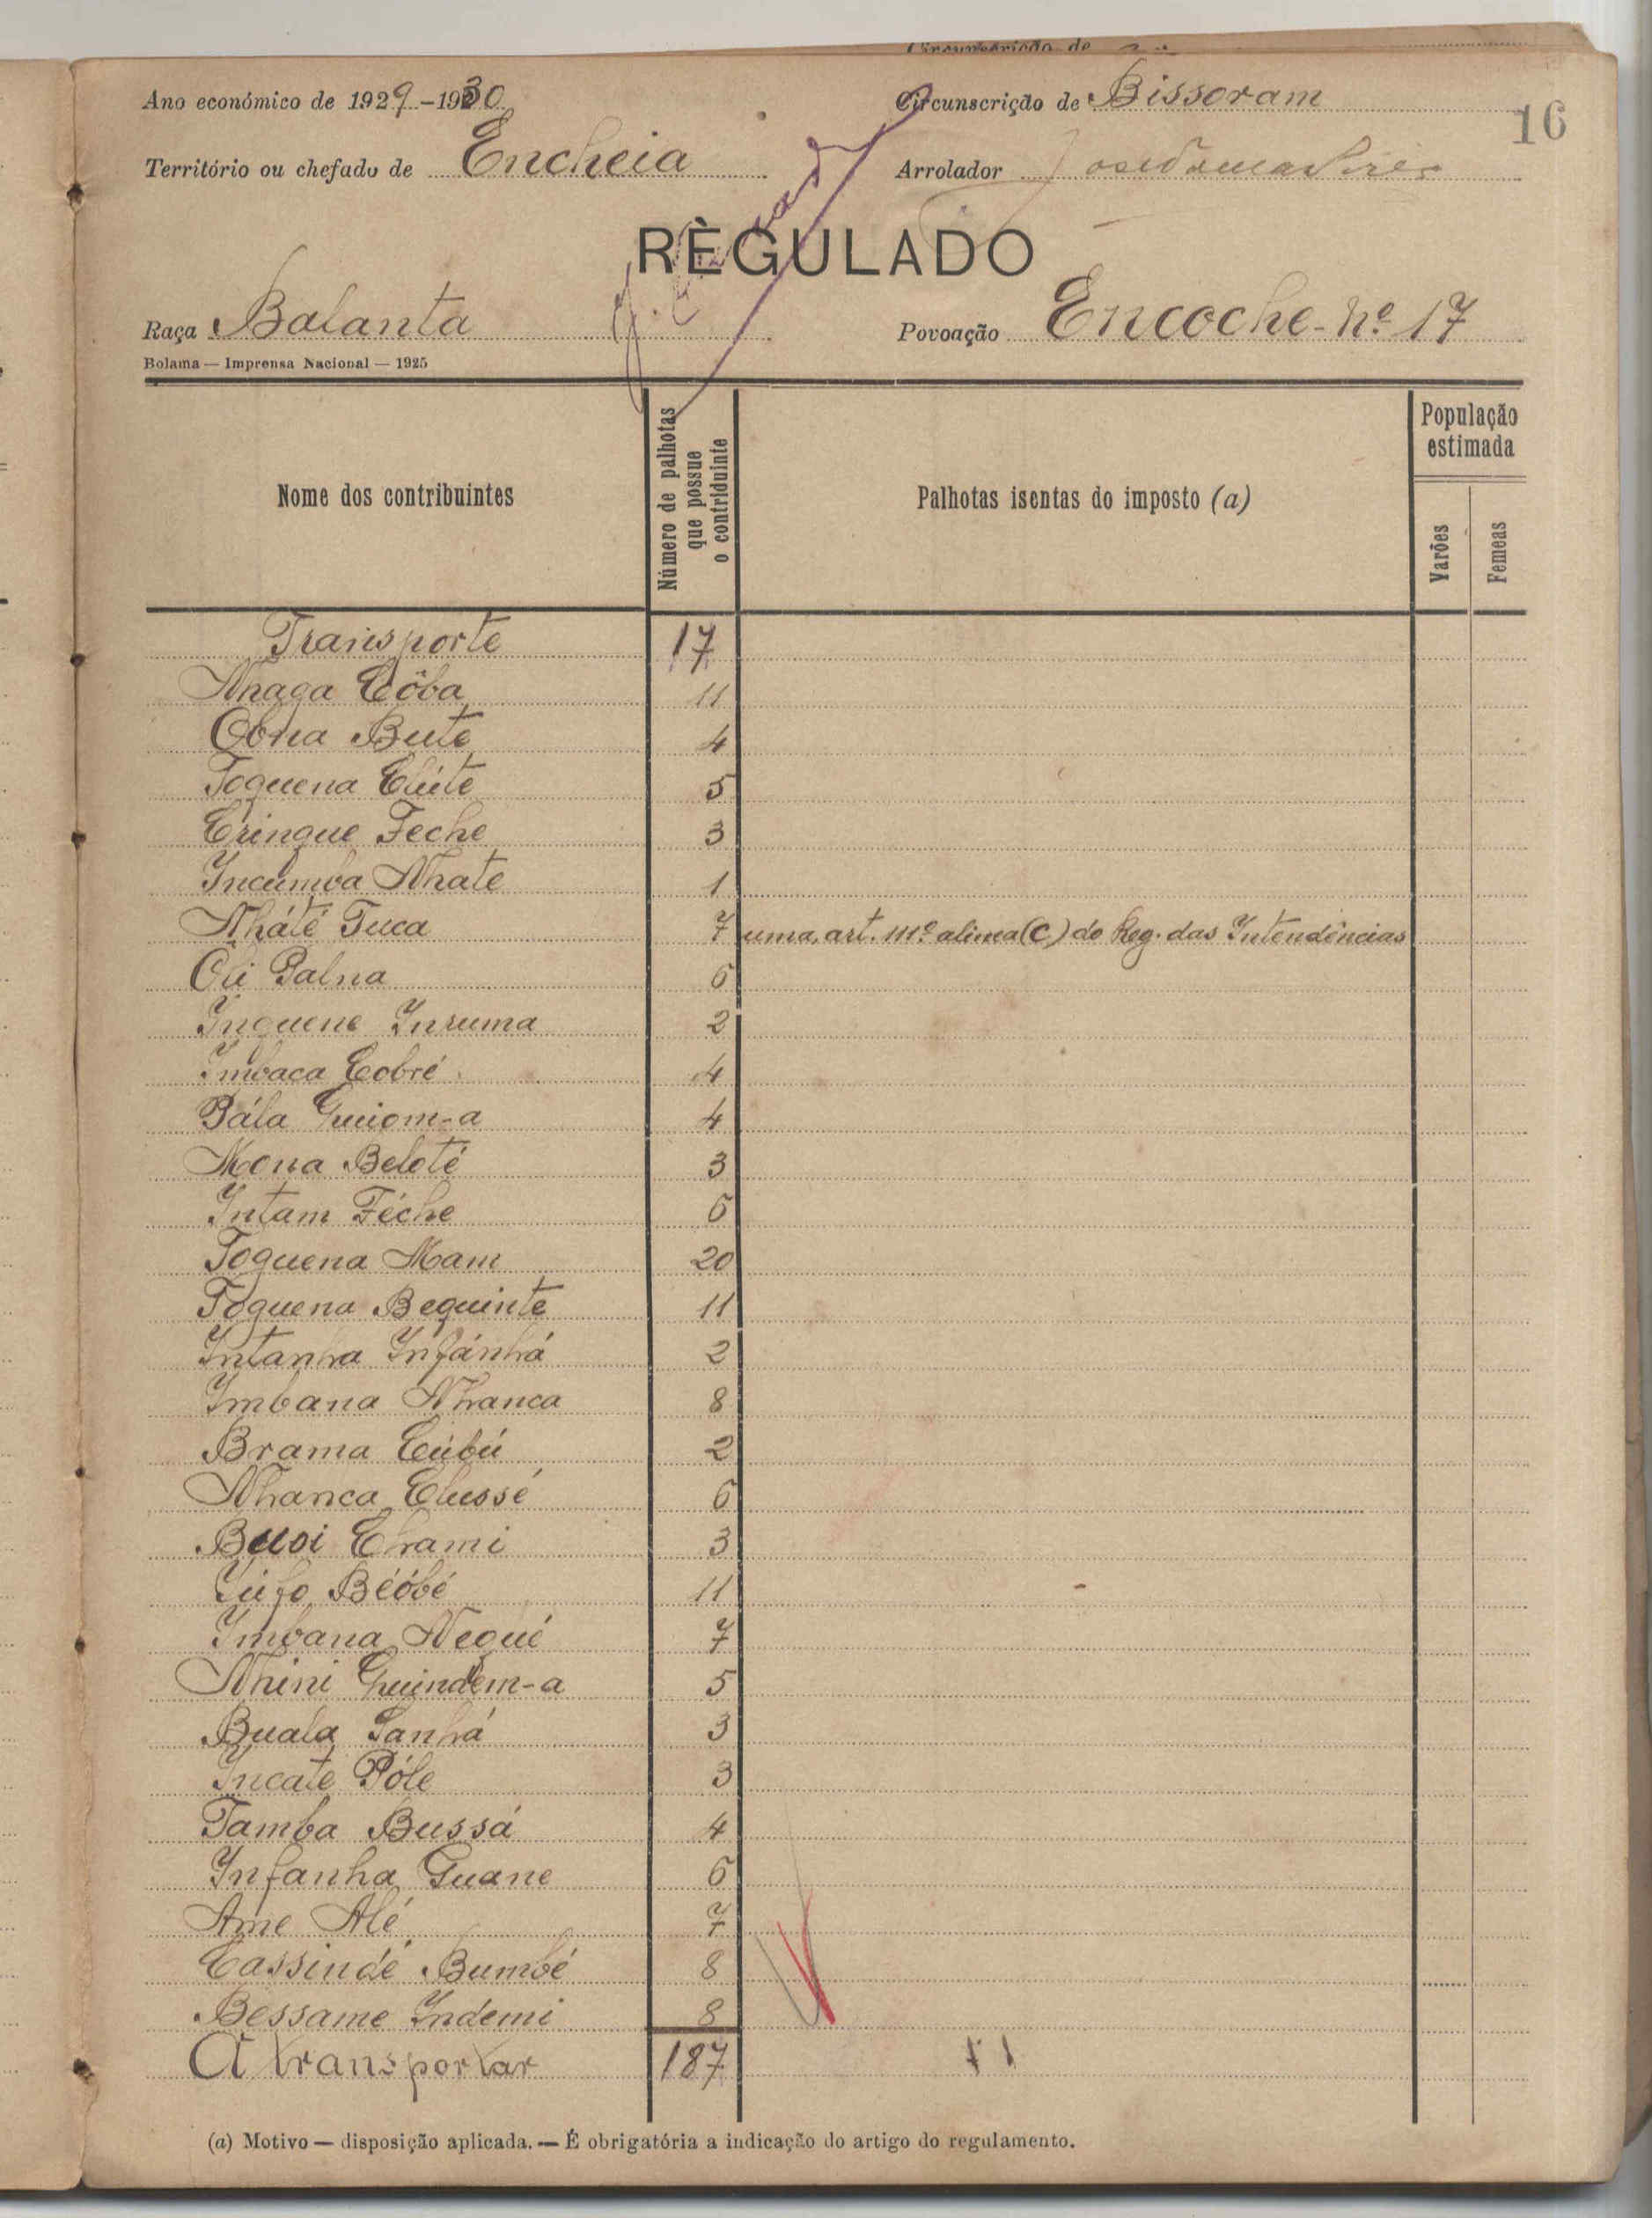 Circunscrição de
Ano económico de 1929-1930
Circunscrição de Bissoram
16
Território ou chefado de Encheia
Arrolador
REGULADO
Raça Balanta
Povoação Encoche-nº 17
Bolama — Imprensa Nacional — 1925
Nome dos contribuintes
Número de palhotas que possue o contriduinte
Palhotas isentas do imposto (a)
População estimada
Varões
Femeas
Transporte 17
Nhaga Cöba 11
Obna Bute 4
Toguena Clúte 5
Cringue Feche 3
Incumba Nhate 1
Nháté Tuca 7 uma, art. 111º alinea (C) do Reg. das Intendências
Oli Palna 6
Inquene Inruma 2
Imbaca Cobré 4
Bála Guiom-a 4
Mona Beloté 3
Intam Féche 6
Toguena Mam 20
Toguena Bequinte 11
Intanha Infánhá 2
Imbana Nhanca 8
Brama Cúbú 2
Nhanca Clussé 6
Buoi Crami 3
Iúfo Béóbé 11
Imbana Nequé 7
Nhini Guindem-a 5
Buala Sanhá 3
Incate Póle 3
Tamba Bussá 4
Infanha Guane 6
Ame Alé 7
Cassindé Bumbé 8
Bessame Indemi 8
A transportar 187
(a) Motivo — disposição aplicada. — É obrigatória a indicação do artigo do regulamento.